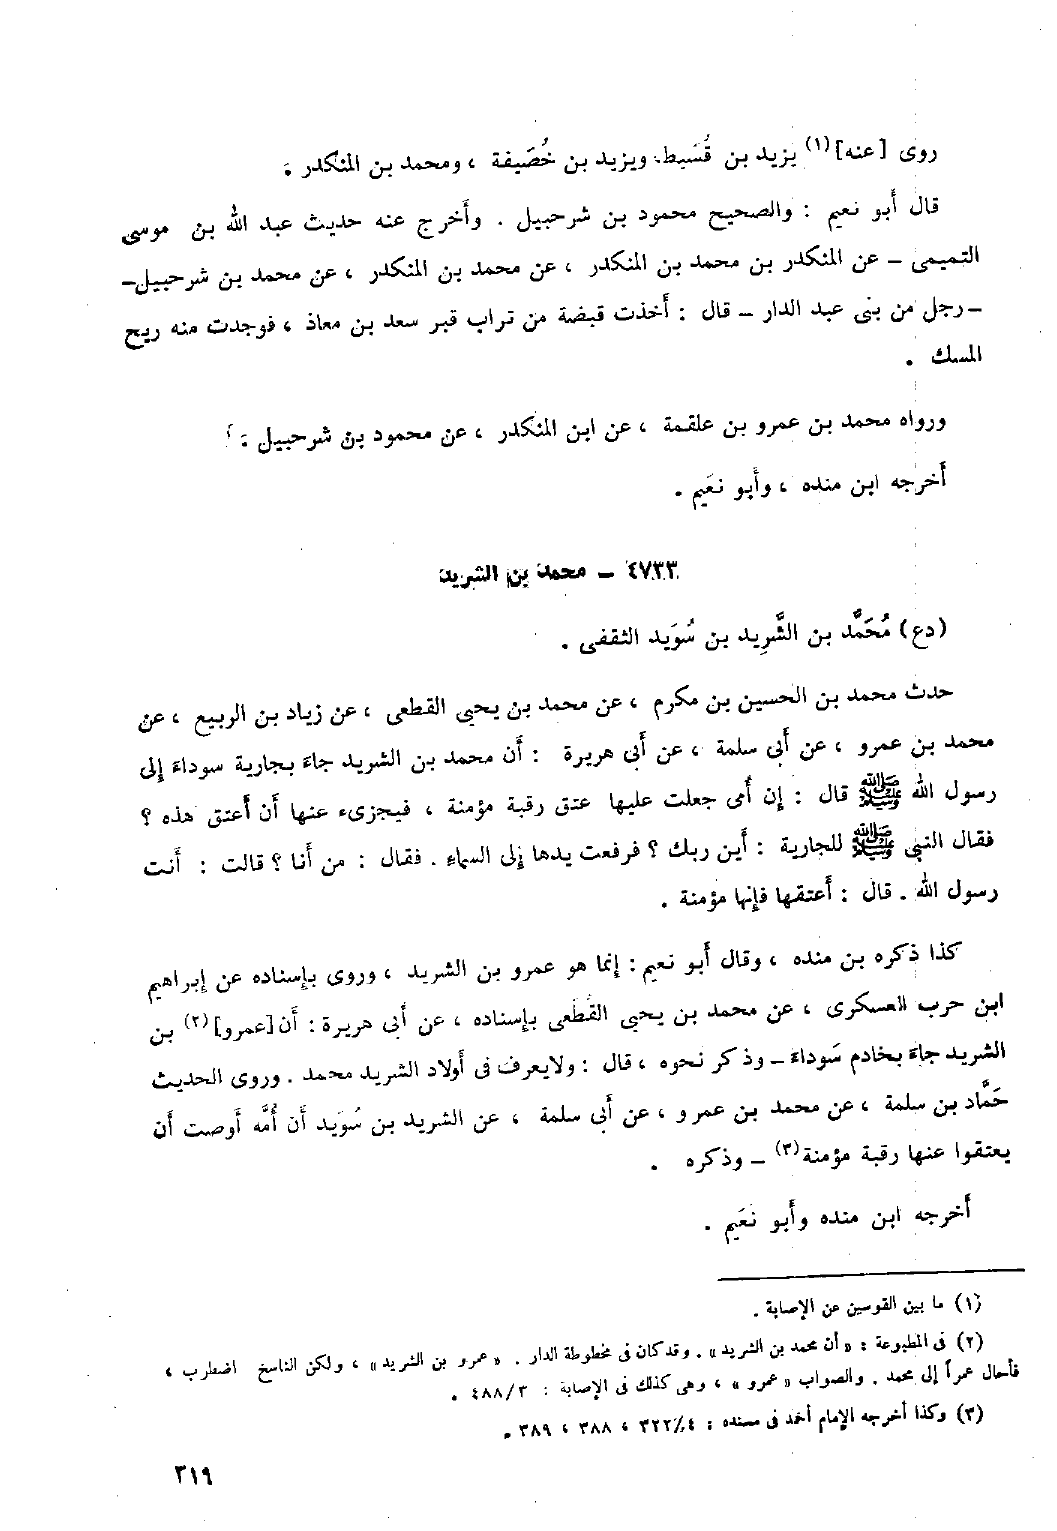 روى [عنه](١) يزيد بن قُسَيط، ويزيد بن خُصَيفة ، ومحمد بن المنكدر .
قال أبو نعيم : والصحيح محمود بن شرحبيل . وأخرج عنه حديث عبد الله بن موسى
التميمى – عن المنكدر بن محمد بن المنكدر ، عن محمد بن المنكدر ، عن محمد بن شرحبيل–
– رجل من بنى عبد الدار – قال : أخذت قبضة من تراب قبر سعد بن معاذ ، فوجدت منه ريح
المسك .
ورواه محمد بن عمرو بن علقمة ، عن ابن المنكدر ، عن محمود بن شرحبيل .
أخرجه ابن منده ، وأبو نعَيم .
٤٧٣٣ – محمد بن الشريد
(دع) مُحَمَّد بن الشَّرِيد بن سُوَيد الثقفى .
حدث محمد بن الحسين بن مكرم ، عن محمد بن يحيى القطعى ، عن زياد بن الربيع ، عن
محمد بن عمرو ، عن أبى سلمة ، عن أبى هريرة : أن محمد بن الشريد جاءَ بجارية سوداءَ إلى
رسول الله ﷺ قال : إن أمى جعلت عليها عتق رقبة مؤمنة ، فيجزىء عنها أن أعتق هذه ؟
فقال النبى ﷺ للجارية : أين ربك ؟ فرفعت يدها إلى السماءِ . فقال : من أنا ؟ قالت : أنت
رسول الله . قال : أعتقها فإنها مؤمنة .
كذا ذكره بن منده ، وقال أبو نعيم : إنما هو عمرو بن الشريد ، وروى بإسناده عن إبراهيم
ابن حرب العسكرى ، عن محمد بن يحيى القُطَعى بإسناده ، عن أبى هريرة : أن [عمرو](٢) بن
الشريد جاءَ بخادم سَوداءَ – وذكر نحوه ، قال : ولايعرف فى أولاد الشريد محمد . وروى الحديث
حَمَّاد بن سلمة ، عن محمد بن عمرو ، عن أبى سلمة ، عن الشريد بن سُوَيد أن أُمَّه أوصت أن
يعتقوا عنها رقبة مؤمنة(٣) – وذكره .
أخرجه ابن منده وأبو نعَيم .
(١) ما بين القوسين عن الإصابة .
(٢) فى المطبوعة : « أن محمد بن الشريد » . وقد كان فى مخطوطة الدار . « عمرو بن الشريد » ، ولكن الناسخ اضطرب ،
فأحال عمراً إلى محمد . والصواب « عمرو » ، وهى كذلك فى الإصابة : ٤٨٨/٣ .
(٣) وكذا أخرجه الإمام أحمد فى مسنده : ٣٢٢/٤ ، ٣٨٨ ، ٣٨٩ .
٣١٩